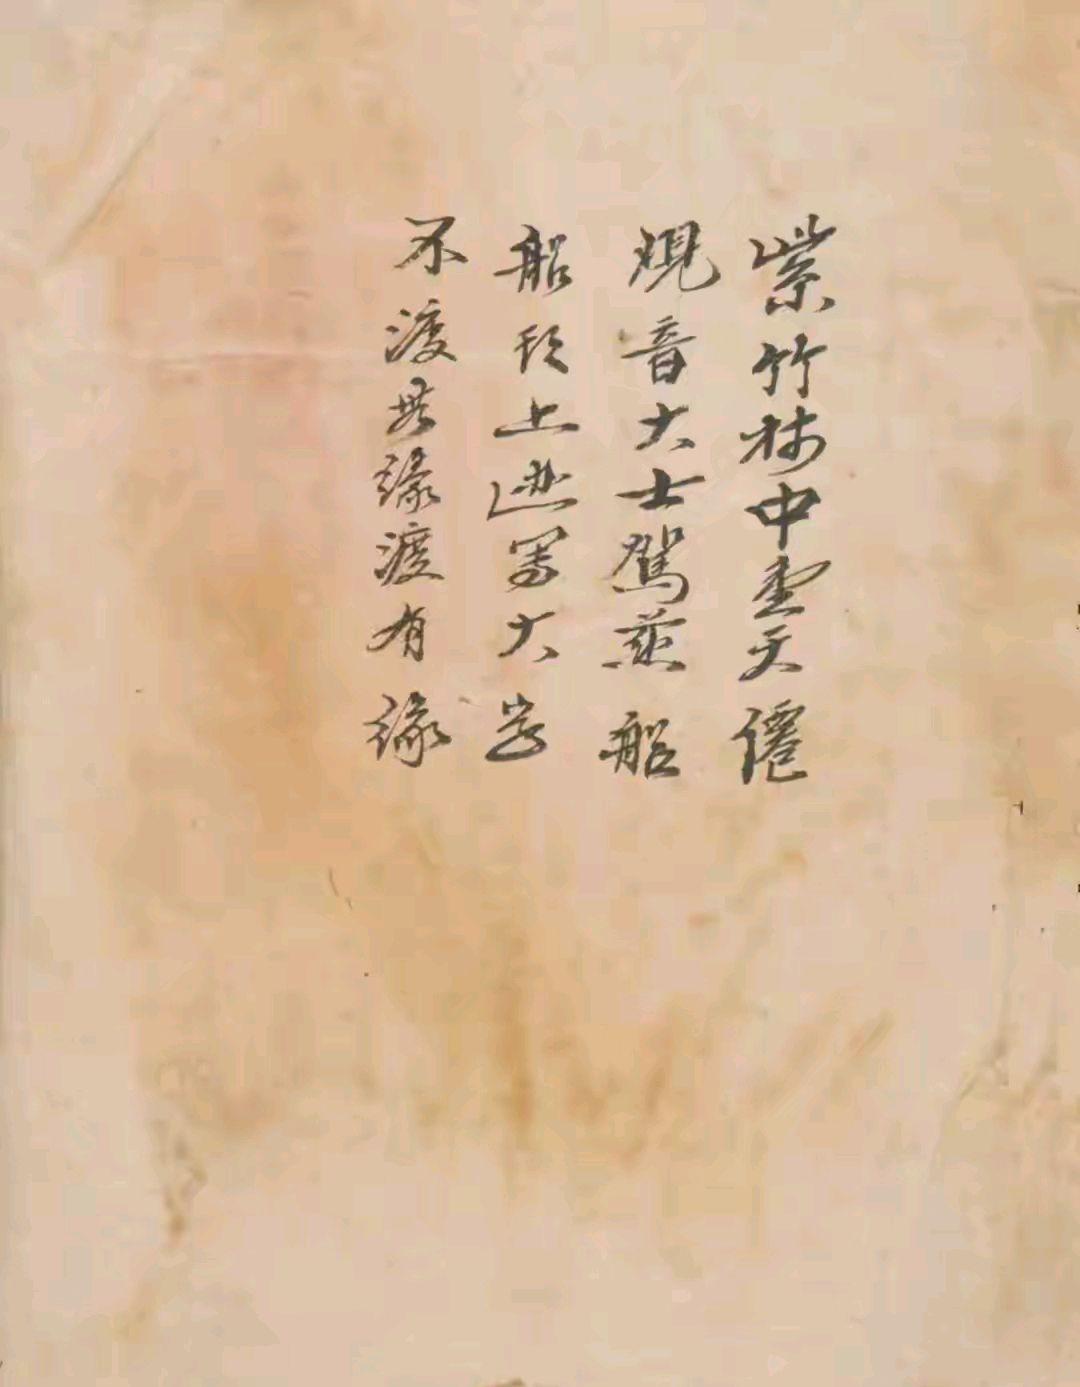 紫竹林中聖天僊
觀音大士駕慈船
船頭上迎寫大字
不渡無緣渡有緣